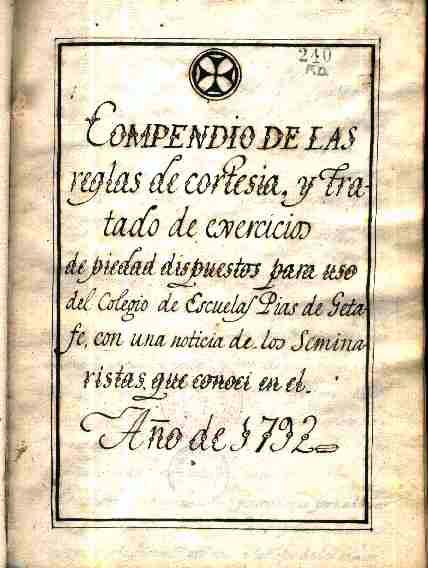 240
F.D.
COMPENDIO DE LAS
reglas de cortesia, y Tra-
tado de exercicios
de piedad dispuestos para uso
del Colegio de Escuelas Pias de Geta-
fe, con una noticia de los Semina-
ristas, que conoci en el.
Año de 1792